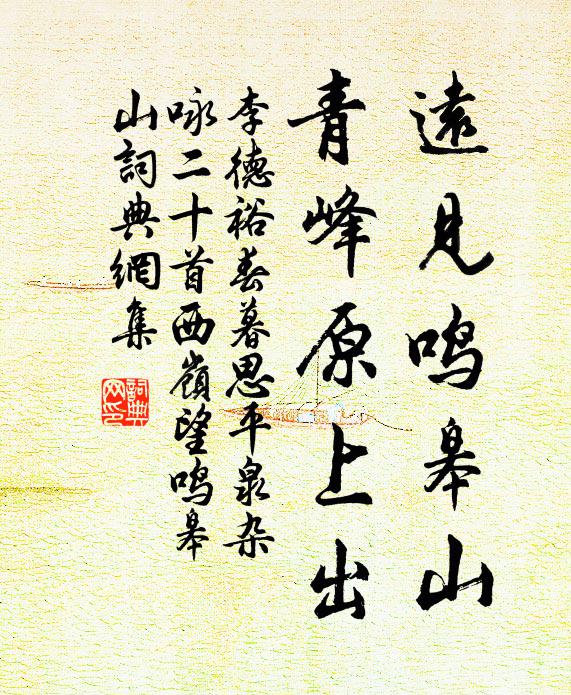 遠見鸣皋山
青峰原上出
李德裕春暮思平泉杂
咏二十首西嶺望鸣皋
山詞典網集
詞典网印